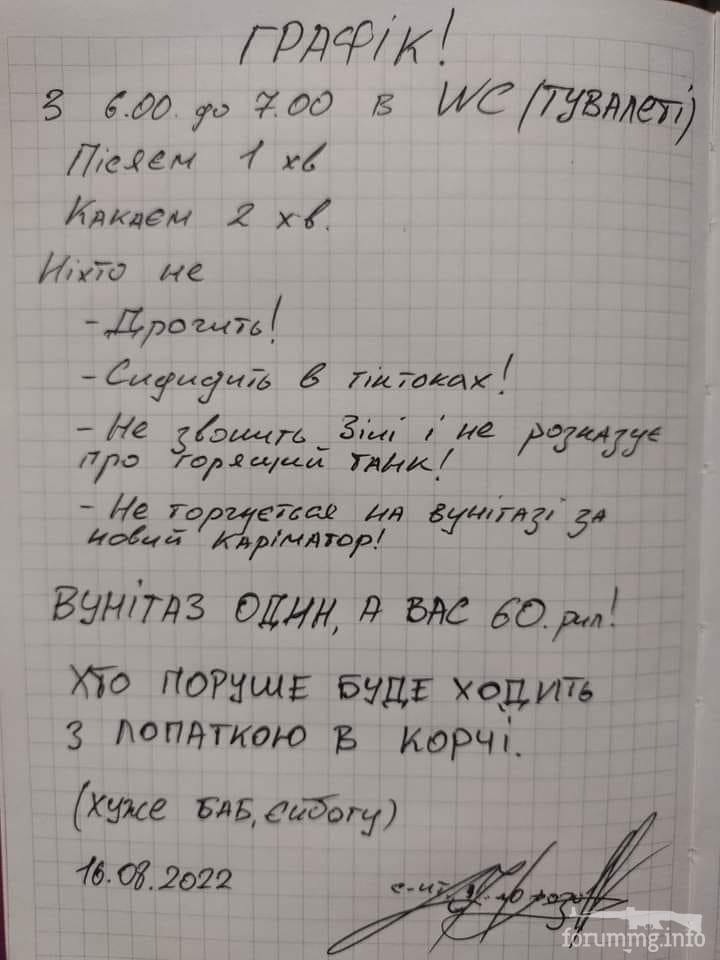 ГРАФІК!
З 6.00. до 7.00 в WC (ТУВАЛЕТІ)
Пісяєм 1 хв
Какаєм 2 хв.
Ніхто не
- Дрочить!
- Сидидить в тіктоках!
- Не звонить Зіні і не розказує
про горящий танк!
- Не торгується на вунітазі за
новий каріматор!
ВУНІТАЗ ОДИН, А ВАС 60. рил!
ХТО ПОРУШЕ БУДЕ ХОДИТЬ
З ЛОПАТКОЮ В КОРЧІ.
(ХУЖЕ БАБ, єйбогу)
16.08.2022
forummg.info